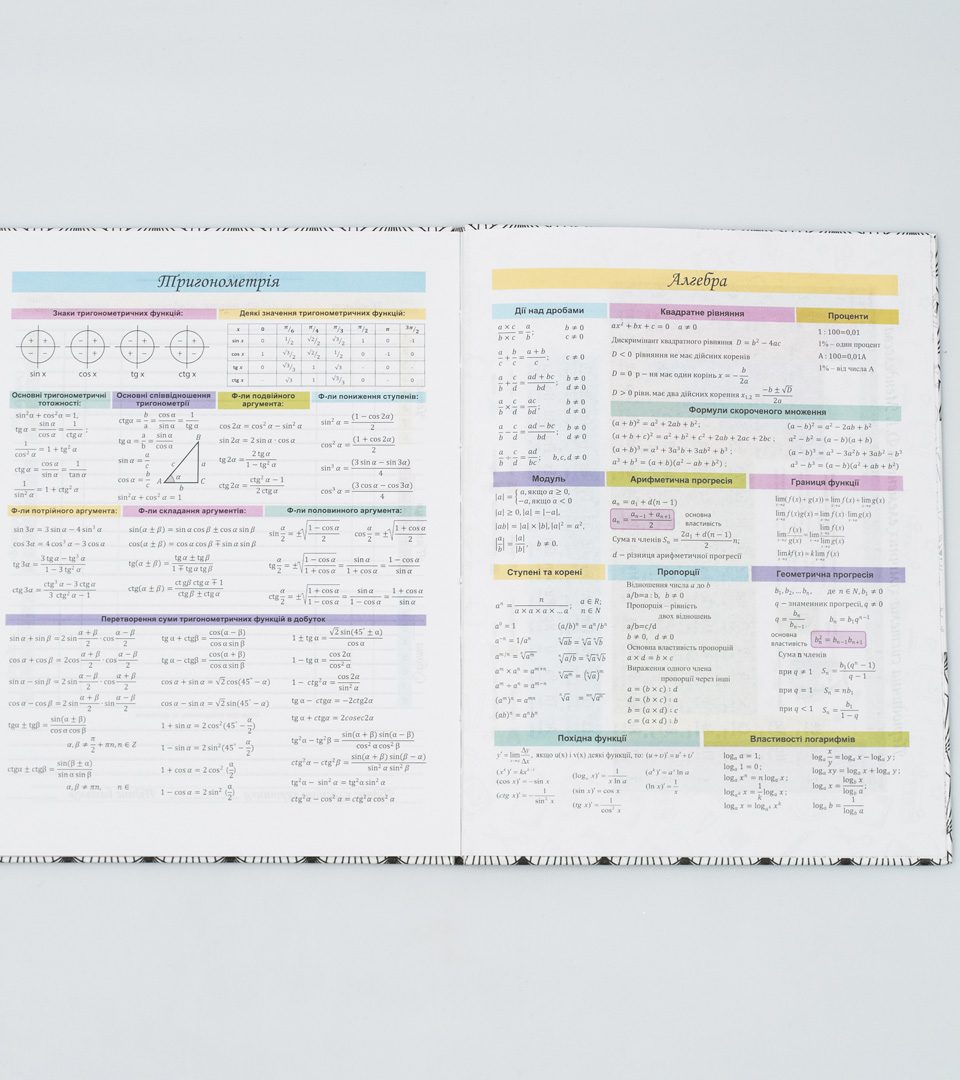 Тригонометрія
Знаки тригонометричних функцій:
sin x cos x tg x ctg x
Деякі значення тригонометричних функцій:
x 0 π/6 π/4 π/3 π/2 π 3π/2
sin x 0 1/2 √2/2 √3/2 1 0 -1
cos x 1 √3/2 √2/2 1/2 0 -1 0
tg x 0 √3/3 1 √3 - 0 -
ctg x - √3 1 √3/3 0 - 0
Основні тригонометричні тотожності:
sin²α + cos²α = 1,
tg α = sin α / cos α = 1 / ctg α ;
1 / cos² α = 1 + tg² α
ctg α = cos α / sin α = 1 / tan α
1 / sin² α = 1 + ctg² α
Основні співвідношення тригонометрії
ctgα = b/a = cos α / sin α = 1 / tg α
tg α = a/b = sin α / cos α
sin α = a/c
cos α = b/c
B c a A α b C
sin²α + cos² α = 1
Ф-ли подвійного аргумента:
cos 2α = cos² α − sin² α
sin 2α = 2 sin α · cos α
tg 2α = 2 tg α / 1 − tg² α
ctg 2α = ctg² α − 1 / 2 ctg α
Ф-ли пониження ступенів:
sin² α = (1 − cos 2α) / 2
cos² α = (1 + cos 2α) / 2
sin³ α = (3 sin α − sin 3α) / 4
cos³ α = (3 cos α − cos 3α) / 4
Ф-ли потрійного аргумента:
sin 3α = 3 sin α − 4 sin³ α
cos 3α = 4 cos³ α − 3 cos α
tg 3α = 3 tg α − tg³ α / 1 − 3 tg² α
ctg 3α = ctg³ α − 3 ctg α / 3 ctg² α − 1
Ф-ли складання аргументів:
sin(α ± β) = sin α cos β ± cos α sin β
cos(α ± β) = cos α cos β ∓ sin α sin β
tg(α ± β) = tg α ± tg β / 1 ∓ tg α tg β
ctg(α ± β) = ct gβ ctg α ∓ 1 / ctg β ± ctg α
Ф-ли половинного аргумента:
sin α/2 = ±√(1 − cos α / 2) cos α/2 = ±√(1 + cos α / 2)
tg α/2 = ±√(1 − cos α / 1 + cos α) = sin α / 1 + cos α = 1 − cos α / sin α
ctg α/2 = ±√(1 + cos α / 1 − cos α) = sin α / 1 − cos α = 1 + cos α / sin α
Перетворення суми тригонометричних функцій в добуток
sin α + sin β = 2 sin α + β / 2 · cos α − β / 2
cos α + cos β = 2cos α + β / 2 · cos α − β / 2
sin α − sin β = 2 sin α − β / 2 · cos α + β / 2
tgα ± tgβ = sin(α ± β) / cos α cos β
α, β ≠ π/2 + πn, n ∈ Z
ctgα ± ctgβ = sin(β ± α) / sin α sin β
α, β ≠ πn, n ∈
tg α + ctgβ = cos(α − β) / cos α sin β
tg α − ctgβ = cos(α + β) / cos α sin β
cos α + sin α = √2 cos(45° − α)
cos α − sin α = √2 sin(45° − α)
1 + sin α = 2 cos²(45° − α/2)
1 − sin α = 2 sin²(45° − α/2)
1 + cos α = 2 cos² (α/2)
1 − cos α = 2 sin² (α/2)
1 ± tg α = √2 sin(45° ± α) / cos α
1 − tg² α = cos 2α / cos² α
1 − ctg²α = cos 2α / sin² α
tg α − ctg α = −2ctg2α
tg α + ctg α = 2cosec2α
tg²α − tg²β = sin(α + β) sin(α − β) / cos² α cos² β
ctg²α − ctg²β = sin(α + β) sin(β − α) / sin² α sin² β
tg²α − sin² α = tg²α sin² α
ctg²α − cos² α = ctg²α cos² α
Алгебра
Дії над дробами
a × c / b × c = a/b; b ≠ 0 c ≠ 0
a/c + b/c = a + b / c; c ≠ 0
a/b ± c/d = ad + bc / bd; b ≠ 0 d ≠ 0
a/b × c/d = ac / bd; b ≠ 0 d ≠ 0
a/b − c/d = ad − bc / bd; b ≠ 0 d ≠ 0
a/b ÷ c/d = ad / bc; b, c, d ≠ 0
Квадратне рівняння
ax² + bx + c = 0 a ≠ 0
Дискримінант квадратного рівняння D = b² − 4ac
D < 0 рівняння не має дійсних коренів
D = 0 р − ня має один корінь x = − b / 2a
D > 0 рівн. має два дійсних корення x₁.₂ = −b ± √D / 2a
Проценти
1 : 100=0,01
1% – один процент
A : 100=0,01A
1% – від числа A
Формули скороченого множення
(a + b)² = a² + 2ab + b² ; (a − b)² = a² − 2ab + b²
(a + b + c)² = a² + b² + c² + 2ab + 2ac + 2bc ; a² − b² = (a − b)(a + b)
(a + b)³ = a³ + 3a²b + 3ab² + b³ ; (a − b)³ = a³ − 3a²b + 3ab² − b³
a³ + b³ = (a + b)(a² − ab + b²) ; a³ − b³ = (a − b)(a² + ab + b²)
Модуль
|a| = { a, якщо a ≥ 0, −a, якщо a < 0
|a| ≥ 0, |a| = |−a|,
|ab| = |a| × |b|, |a|² = a²,
|a/b| = |a| / |b|, b ≠ 0.
Арифметична прогресія
aₙ = a₁ + d(n − 1)
aₙ = aₙ₋₁ + aₙ₊₁ / 2 основна властивість
Сума n членів Sₙ = 2a₁ + d(n − 1) / 2 n;
d − різниця арифметичної прогресії
Границя функції
lim(f(x) + g(x)) = lim f(x) + lim g(x)
lim f(x)g(x) = lim f(x) · lim g(x)
lim f(x) / g(x) = lim f(x) / lim g(x)
lim kf(x) = k lim f(x)
Ступені та корені
aⁿ = n / a × a × a × …a ; a ∈ R; n ∈ N
a⁰ = 1 (a/b)ⁿ = aⁿ/bⁿ
a⁻ⁿ = 1/aⁿ ⁿ√ab = ⁿ√a ⁿ√b
aᵐ/ⁿ = ⁿ√aᵐ ⁿ√a/b = ⁿ√a/ⁿ√b
aᵐ × aⁿ = aᵐ⁺ⁿ ⁿ√aᵐ = (ⁿ√a)ᵐ
aᵐ ÷ aⁿ = aᵐ⁻ⁿ
(aᵐ)ⁿ = aᵐⁿ
(ab)ⁿ = aⁿbⁿ
Пропорції
Відношення числа a до b
a/b=a : b, b ≠ 0
Пропорція – рівність
двох відношень
a/b=c/d
b ≠ 0, d ≠ 0
Основна властивість пропорцій
a × d = b × c
Вираження одного члена
пропорції через інші
a = (b × c) : d
d = (b × c) : a
b = (a × d) : c
c = (a × d) : b
Геометрична прогресія
b₁, b₂, … bₙ, де n ∈ N, b₁ ≠ 0
q − знаменник прогресії, q ≠ 0
q = bₙ / bₙ₋₁ bₙ = b₁qⁿ⁻¹
основна властивість bₙ² = bₙ₋₁bₙ₊₁
Сума n членів
при q ≠ 1 Sₙ = b₁(qⁿ − 1) / q − 1
при q = 1 Sₙ = nb₁
при q < 1 Sₙ = b₁ / 1 − q
Похідна функції
y' = lim Δy / Δx , якщо u(x) і v(x) деякі функції, то: (u + υ)' = u' + υ'
(cos x)' = − sin x
(ctg x)' = − 1 / sin² x
(logₐ x)' = 1 / x ln a
(sin x)' = cos x
(tg x)' = 1 / cos² x
(aˣ)' = aˣ ln a
(ln x)' = 1/x
Властивості логарифмів
logₐ a = 1;
logₐ 1 = 0 ;
logₐ xⁿ = n logₐ x ;
log_aᵏ x = 1/k logₐ x ;
logₐ x = log_aᵏ xᵏ
logₐ x/y = logₐ x − logₐ y ;
logₐ xy = logₐ x + logₐ y ;
logₐ x = log_b x / log_b a ;
logₐ b = 1 / log_b a